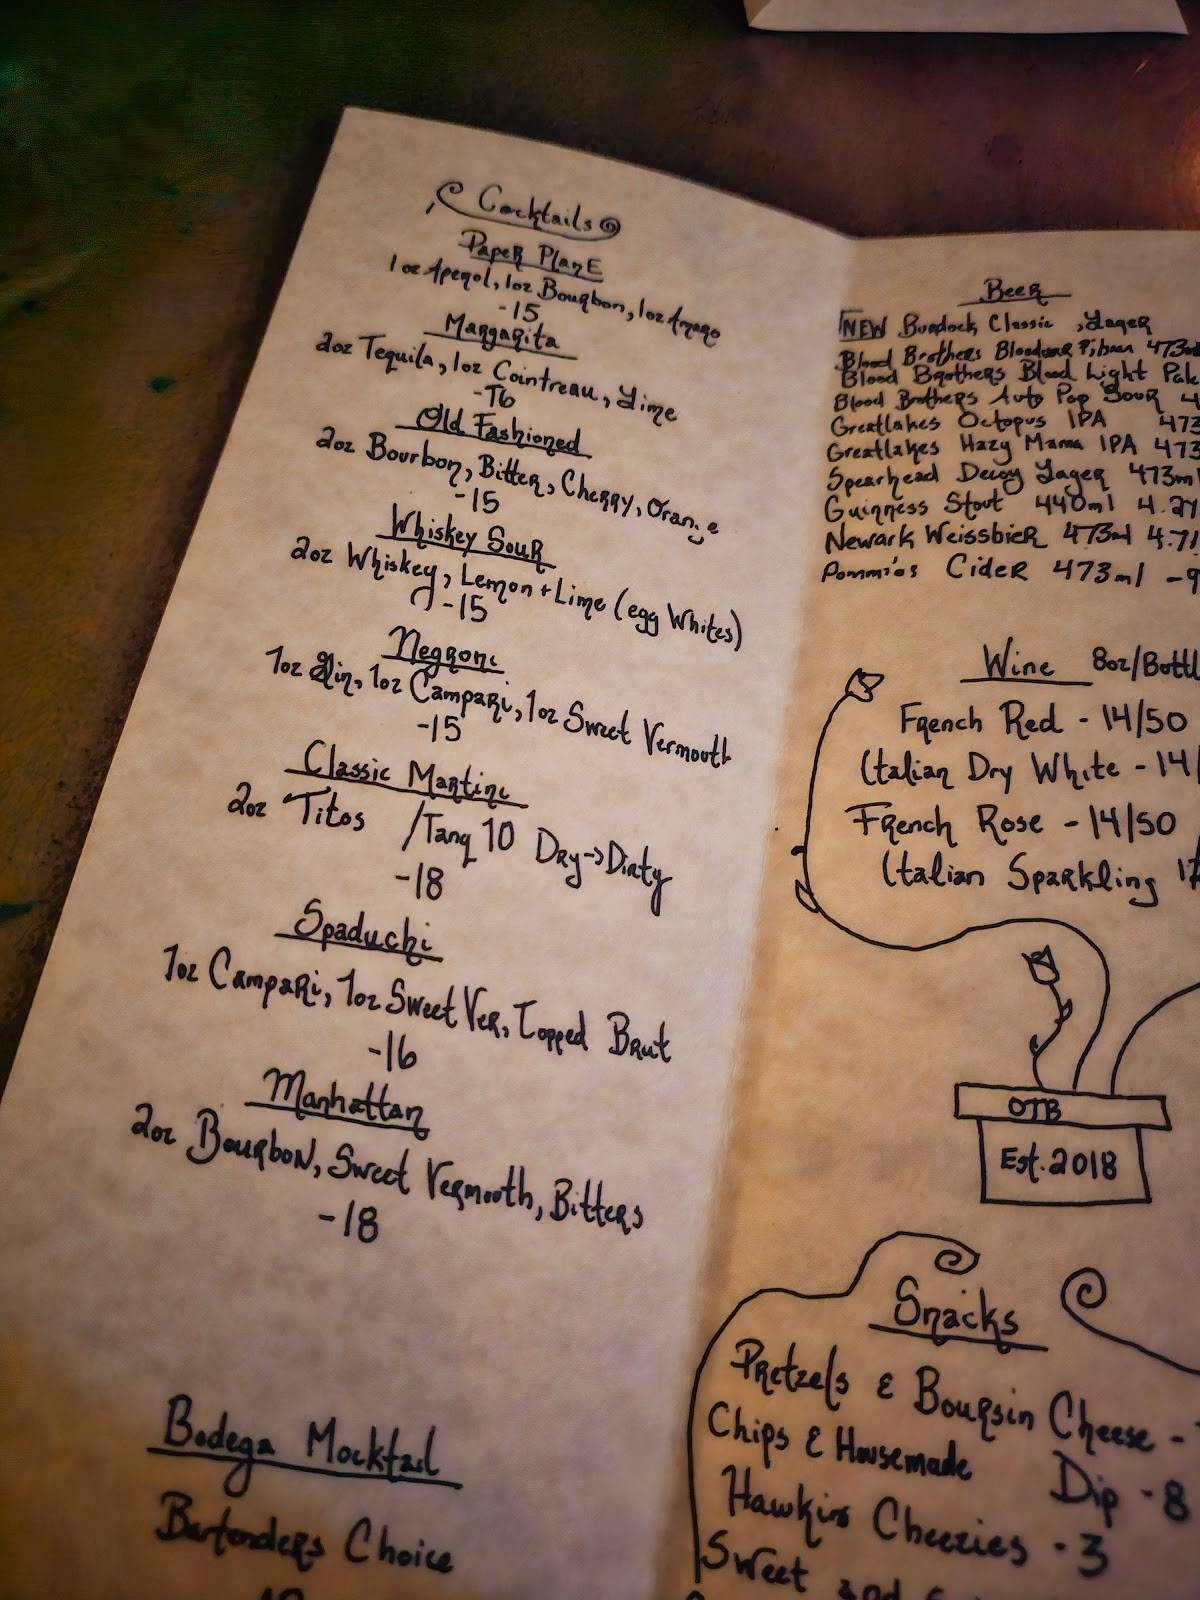 Cocktails
Paper Plane
1oz Aperol, 1oz Bourbon, 1oz Amaro
-15
Margarita
2oz Tequila, 1oz Cointreau, Lime
-16
Old Fashioned
2oz Bourbon, Bitter, Cherry, Orange
-15
Whiskey Sour
2oz Whiskey, Lemon + Lime (egg Whites)
-15
Negroni
1oz Gin, 1oz Campari, 1oz Sweet Vermouth
-15
Classic Martini
2oz Titos /Tanq 10 Dry->Dirty
-18
Spaduchi
1oz Campari, 1oz Sweet Ver, Topped Brut
-16
Manhattan
2oz Bourbon, Sweet Vermouth, Bitters
-18
Bodega Mocktail
Bartenders Choice
Beer
NEW Burdock Classic , Lager
Blood Brothers
Blood Brothers Blood Light
Blood Brothers Auto Pop Sour
Greatlakes Octopus IPA 473
Greatlakes Hazy Mama IPA 473
Spearhead Decoy Lager 473ml
Guinness Stout 440ml
Newark Weissbier 473ml
Pommies Cider 473ml -9
Wine 8oz/Bottl
French Red - 14/50
Italian Dry White - 14/
French Rose - 14/50
Italian Sparkling
OTB
Est. 2018
Snacks
Pretzels & Boursin Cheese -
Chips & Housemade Dip - 8
Hawkins Cheezies - 3
Sweet and